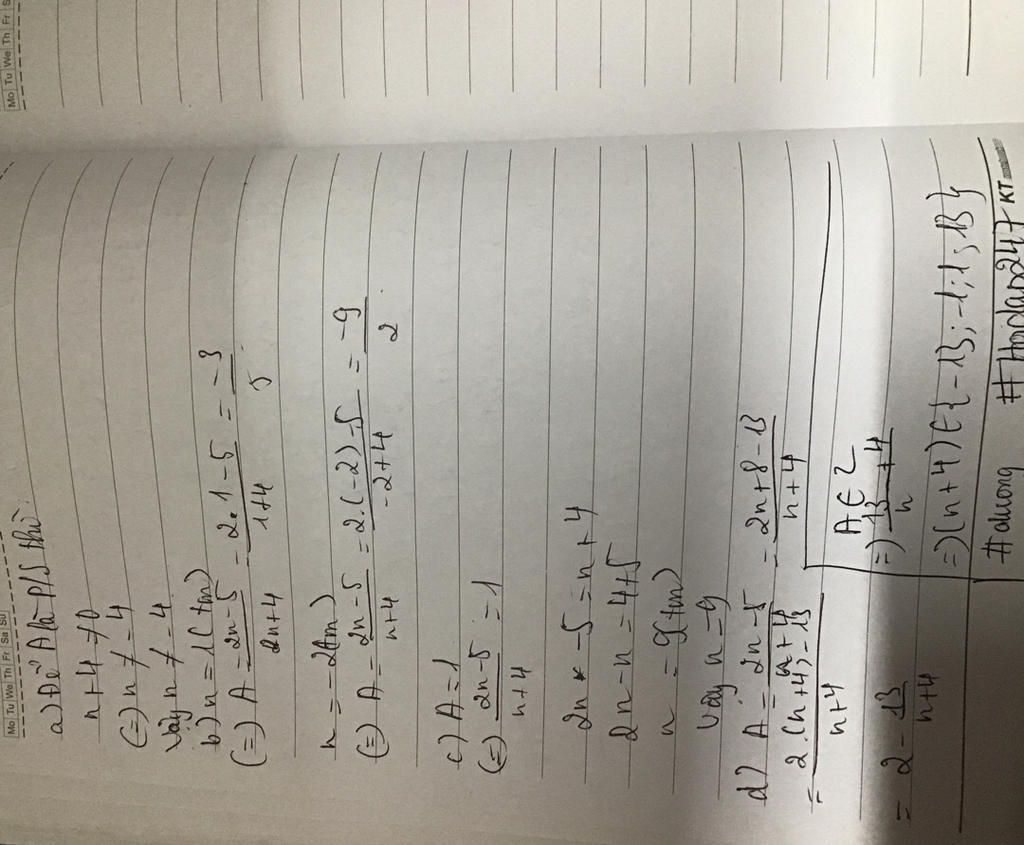 Mo Tu We Th Fr S
Mo Tu We Th Fr Sa Su
a) Để A là P/S thì:
n+4 ≠ 0
(=) n ≠ -4
Vậy n ≠ -4
b) n = 1 (tm)
(=) A = 2n-5 / 2n+4 = 2.1-5 / 1+4 = -3 / 5
n = -2 (tm)
(=) A = 2n-5 / n+4 = 2.(-2)-5 / -2+4 = -9 / 2
c) A = 1
(=) 2n-5 / n+4 = 1
2n -5 = n+4
2n-n = 4+5
n = 9 (tm)
Vậy n = 9
d) A = 2n-5 / n+4 = 2n+8-13 / n+4
= 2.(n+4)-13 / n+4
= 2 - 13 / n+4
A ∈ Z
=) 13 / n +4
=) (n+4) ∈ {-13; -1; 1; 13}
#aluong #Hoidap247
KT